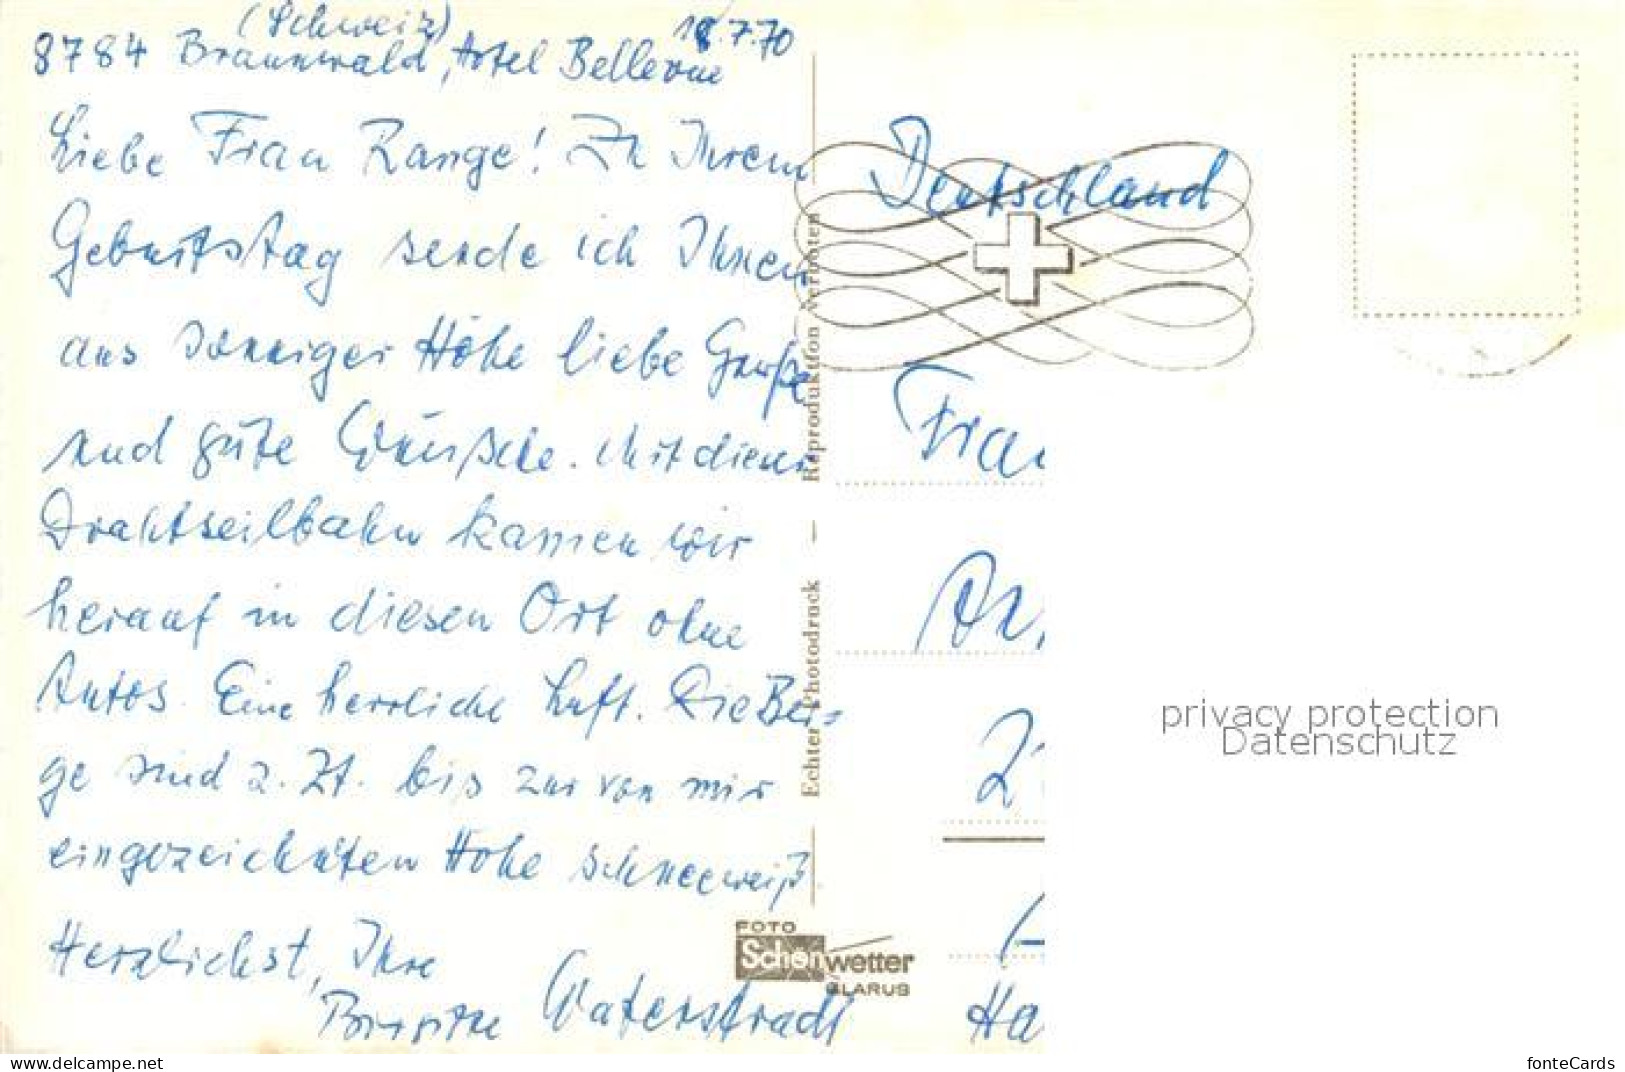 (Schweiz)
8784 Braunwald, Hotel Bellevue 18.7.70
Liebe Frau Range! Zu Ihrem
Geburtstag sende ich Ihnen
aus sonniger Höhe liebe Grüße
und gute Wünsche. Mit dieser
Drahtseilbahn kamen wir
herauf in diesen Ort ohne
Autos. Eine herrliche Luft. Die Ber=
ge sind z. Zt. bis zur von mir
eingezeichneten Höhe schneeweiß.
Herzlichst, Ihre
Brigitte Waterstradt
Echter Photodruck — Reproduktion verboten
FOTO
Schönwetter
GLARUS
Deutschland
Frau
2
Ha
privacy protection
Datenschutz
https://www.delcampe.net
fonteCards